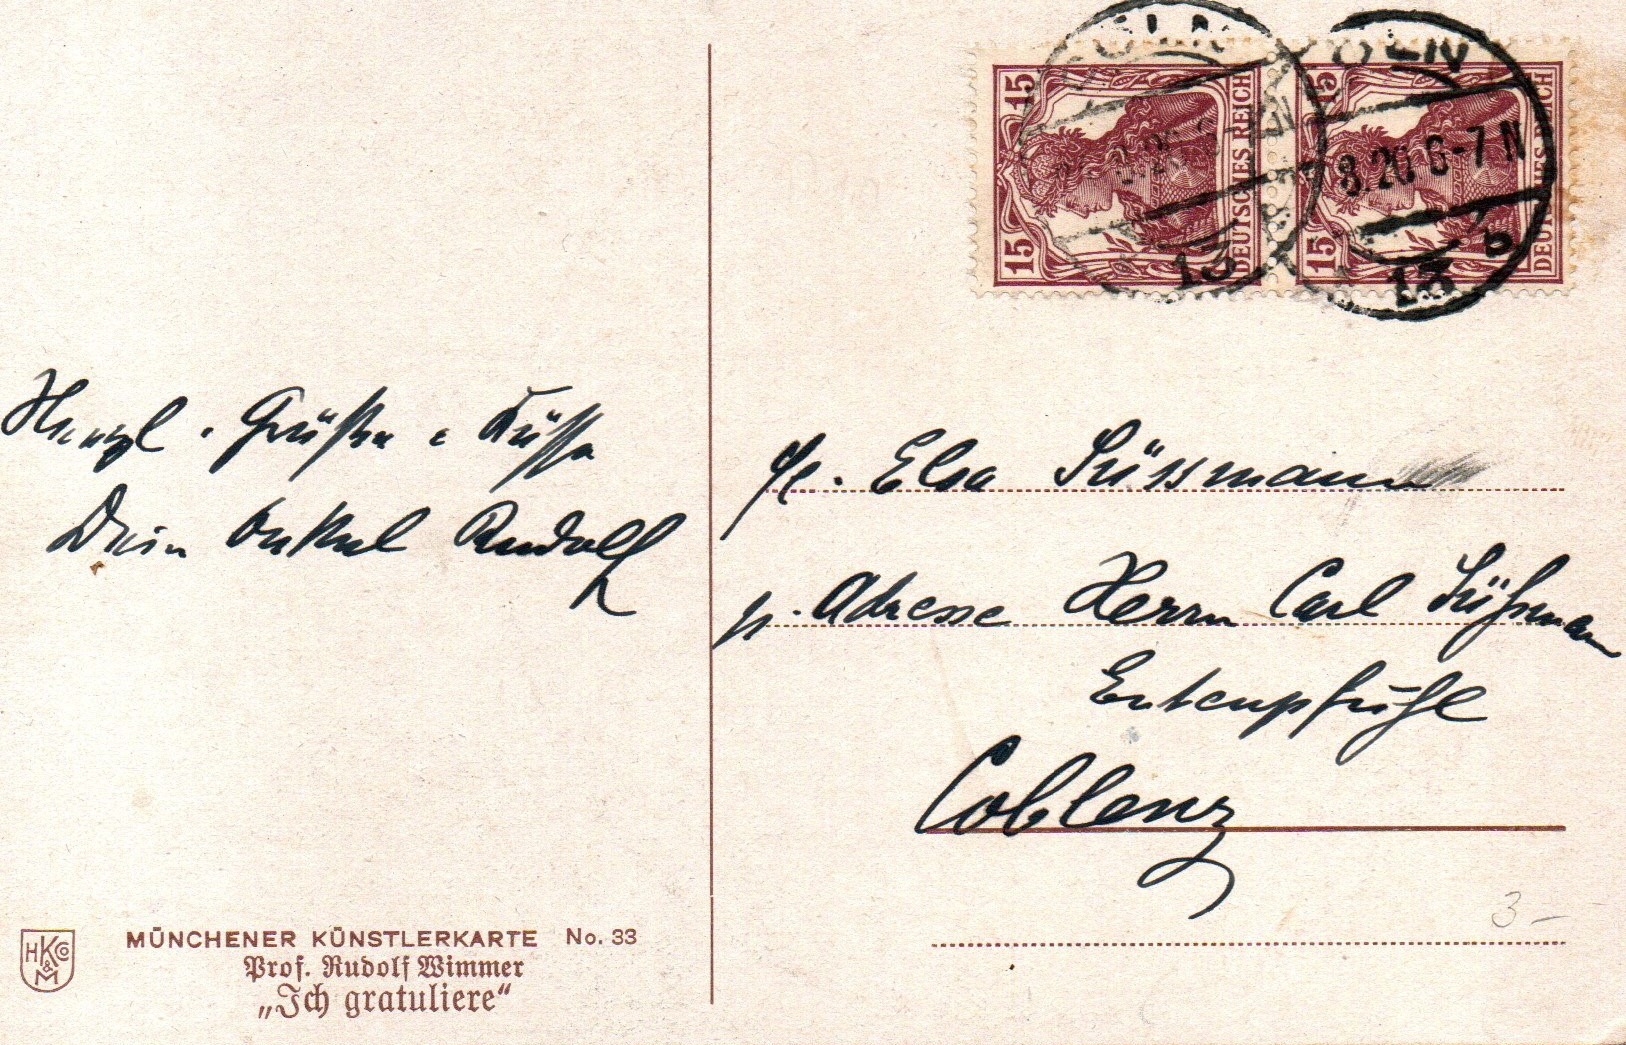 Herzl. Grüße & Küsse
Dein Onkel Rudolf
15 15
DEUTSCHES REICH
15 15
DEUTSCHES REICH
CÖLN
13
CÖLN
8.20 6-7 N
13 b
Frl. Elsa Süssmann
p. Adresse Herrn Carl Süßmann
Entenpfuhl
Coblenz
3-
HKCo
&
M
MÜNCHENER KÜNSTLERKARTE No. 33
Prof. Rudolf Wimmer
„Ich gratuliere“